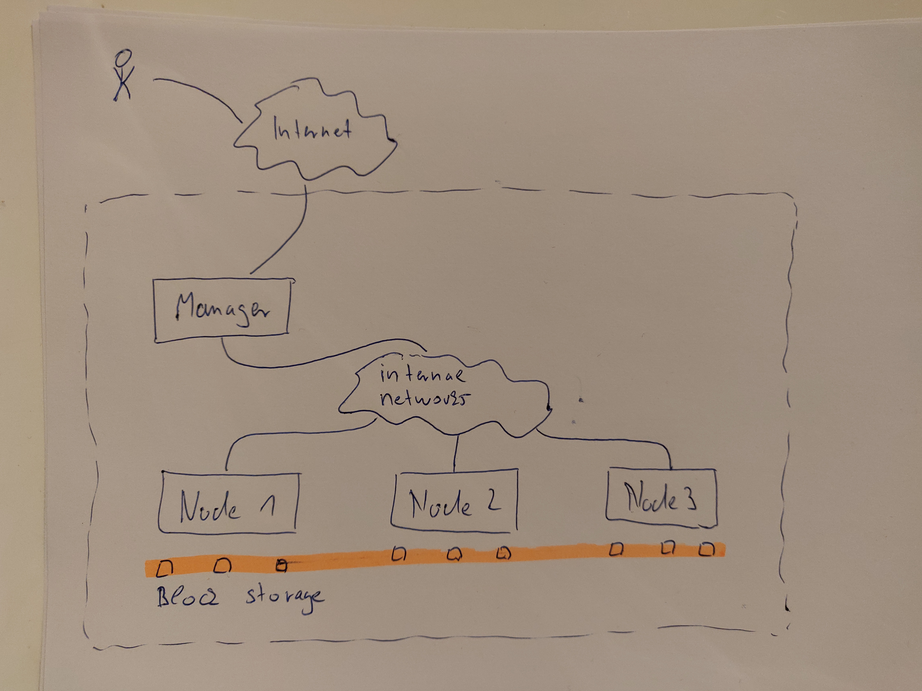 Internet
Manager
internal
network
Node 1
Node 2
Node 3
Block storage